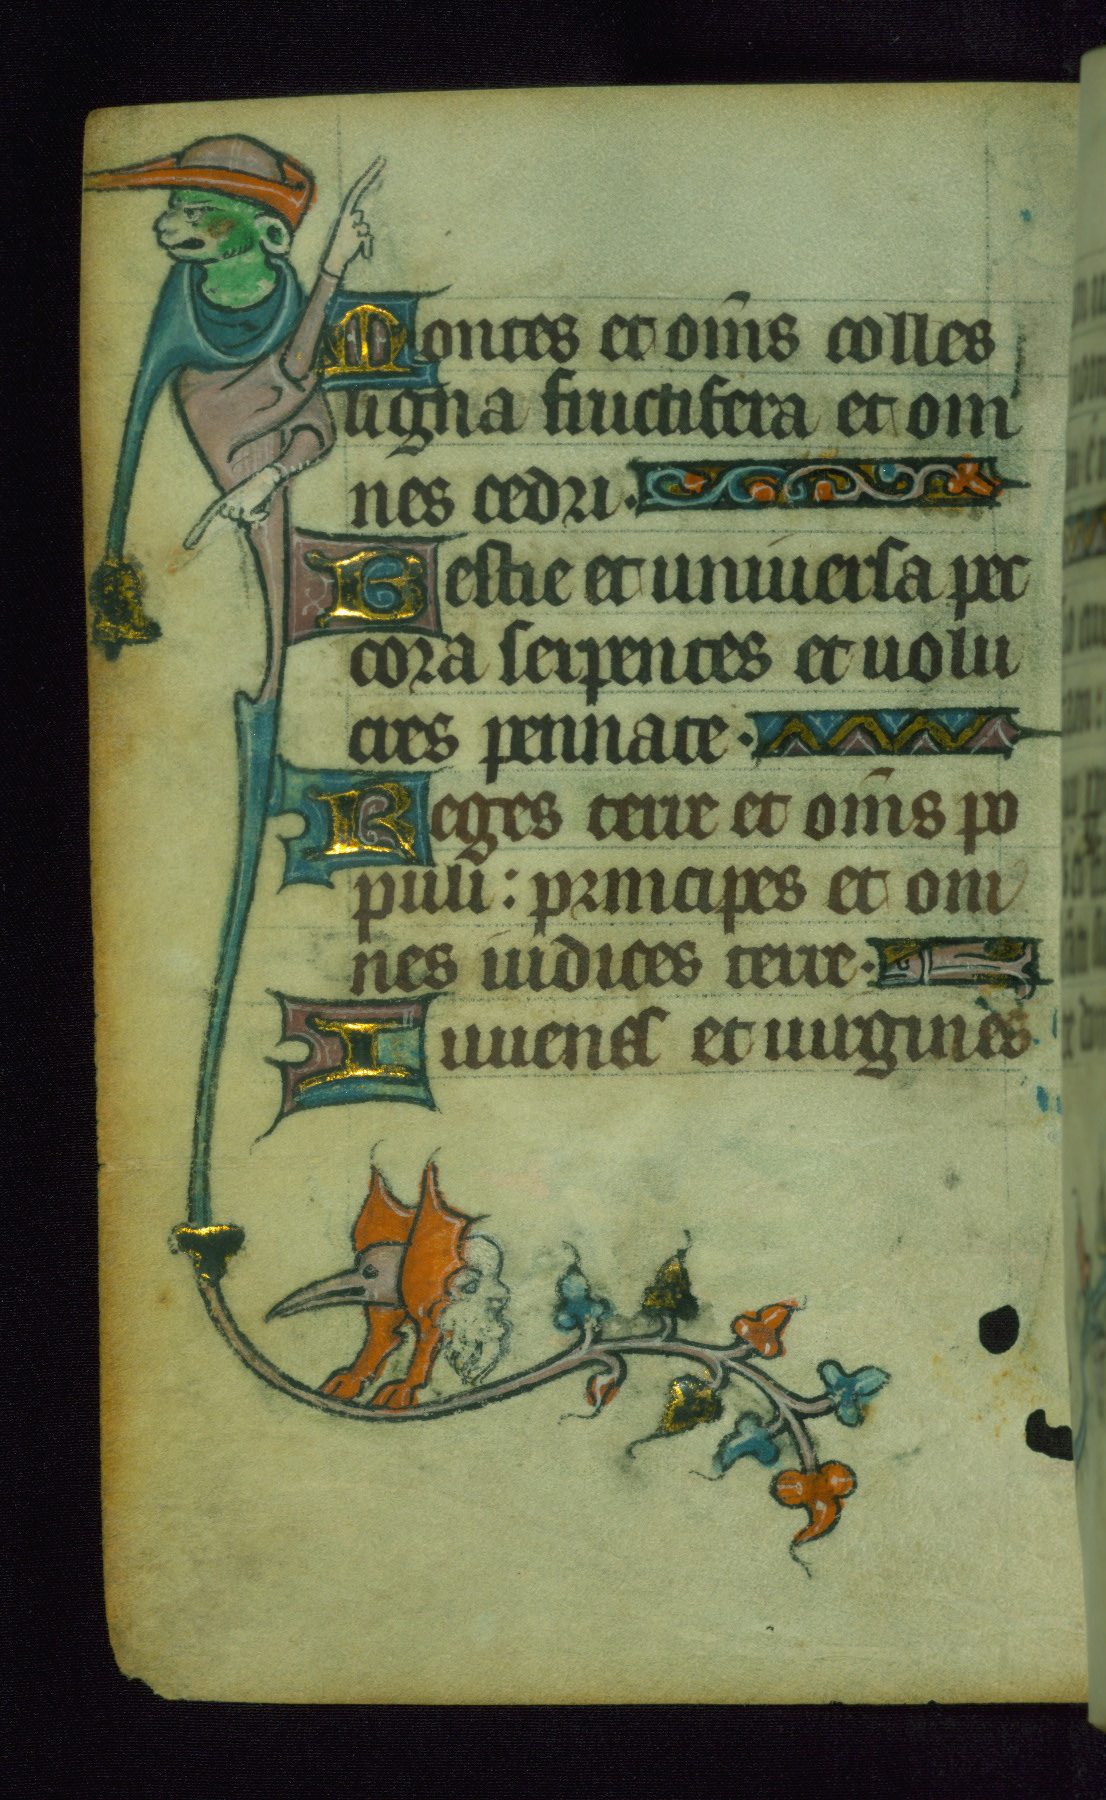 Montes et om̄s colles
ligna fructifera et om
nes cedri·
Bestie et uniuersa pec
cora serpentes et uolu
cres pennate·
Reges terre et om̄s po
puli: principes et om
nes iudices terre·
Iuuenes et uirgines